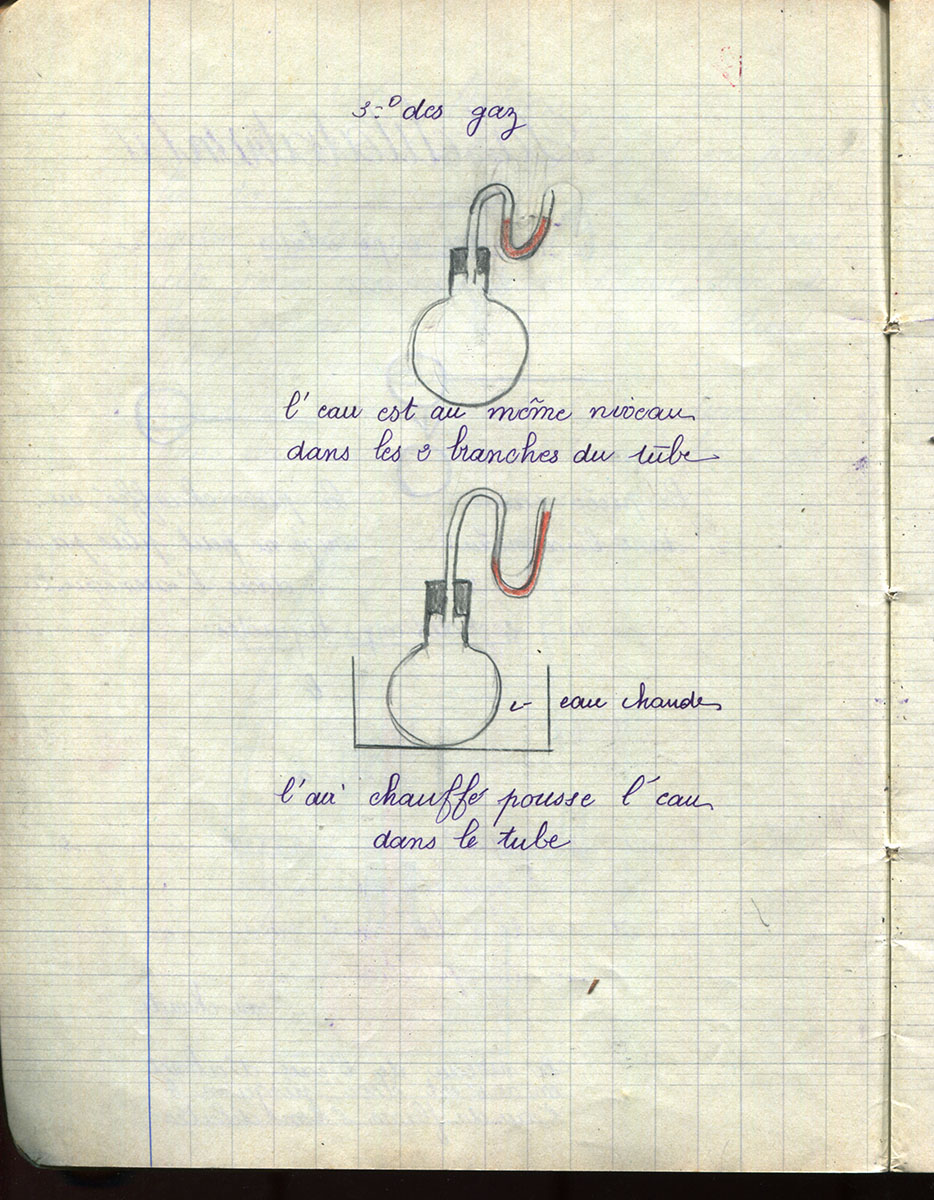 3-º des gaz
l'eau est au même niveau
dans les 2 branches du tube
eau chaude
l'air chauffé pousse l'eau
dans le tube